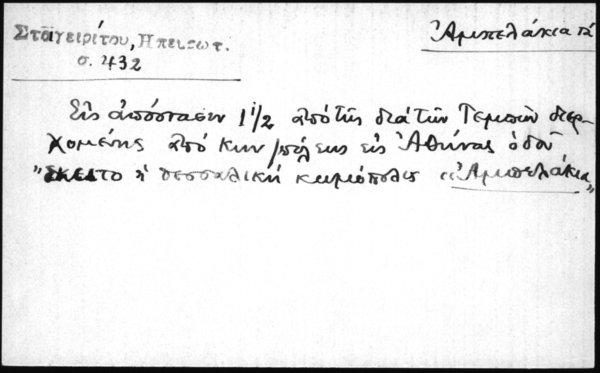 Σταγειρίτου, Ηπειρωτ.
σ. 432
Ἀμπελάκια τά
Εἰς ἀπόστασιν 1 1/2 ἀπὸ τῆς διὰ τῶν Τεμπῶν διερ-
χομένης ἀπό Κων/πόλεως εἰς Ἀθήνας ὁδοῦ
"ἔκειτο ἡ θεσσαλική κωμόπολις Ἀμπελάκια"